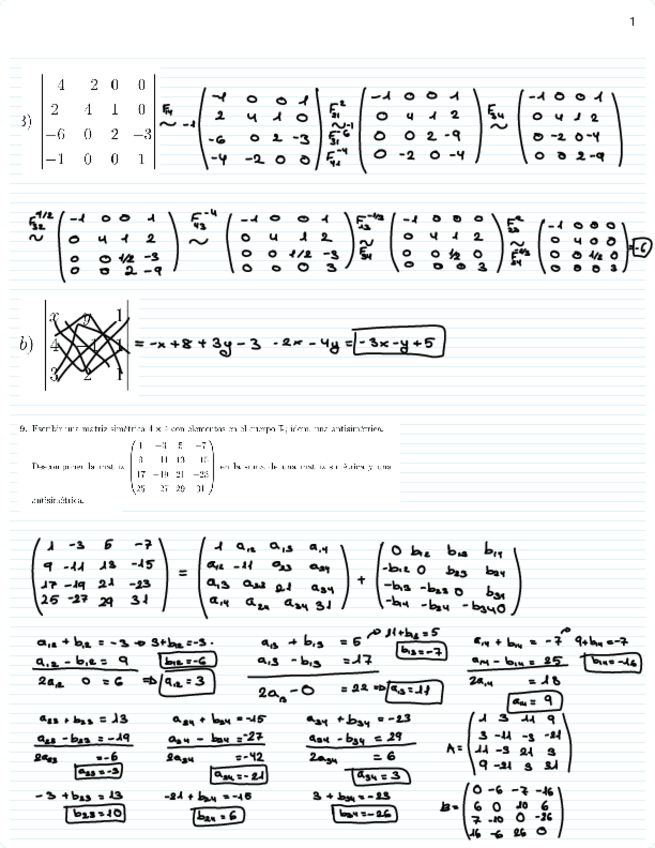 1
3) | 4 2 0 0 |
| 2 4 1 0 |
| -6 0 2 -3 |
| -1 0 0 1 |
F14 ~ -1 ( -1 0 0 1 / 2 4 1 0 / -6 0 2 -3 / -4 -2 0 0 ) ~ -1 ( -1 0 0 1 / 0 4 1 2 / 0 0 2 -9 / 0 -2 0 -4 ) F34 ~ ( -1 0 0 1 / 0 4 1 2 / 0 -2 0 -4 / 0 0 2 -9 )
F32 1/2 ~ ( -1 0 0 1 / 0 4 1 2 / 0 0 1/2 -3 / 0 0 2 -9 ) F43 -4 ~ ( -1 0 0 1 / 0 4 1 2 / 0 0 1/2 -3 / 0 0 0 3 ) ~ ( -1 0 0 0 / 0 4 1 2 / 0 0 1/2 0 / 0 0 0 3 ) ~ ( -1 0 0 0 / 0 4 0 0 / 0 0 1/2 0 / 0 0 0 3 ) = -6
b) | x y 1 / 4 -1 1 / 3 2 1 | = -x + 8 + 3y - 3 - 2x - 4y = -3x - y + 5
9. Escribir una matriz simétrica 4 × 4 con elementos en el cuerpo ídem, una antisimétrica.
Descomponer la matriz ( 1 -3 5 -7 / 9 -11 13 -15 / 17 -19 21 -23 / 25 -27 29 31 ) en la suma de una matriz simétrica y una
antisimétrica.
( 1 -3 5 -7 / 9 -11 13 -15 / 17 -19 21 -23 / 25 -27 29 31 ) = ( 1 a12 a13 a14 / a12 -11 a23 a24 / a13 a23 21 a34 / a14 a24 a34 31 ) + ( 0 b12 b13 b14 / -b12 0 b23 b24 / -b13 -b23 0 b34 / -b14 -b24 -b34 0 )
a12 + b12 = -3 → 3+b12=-3 a13 + b13 = 5 → 11+b13=5 a14 + b14 = -7 → 9+b14=-7
a12 - b12 = 9 b12=-6 a13 - b13 = 17 b13=-7 a14 - b14 = 25 b14=-16
2a12 0 = 6 ⇒ a12 = 3 2a13 - 0 = 22 ⇒ a13=11 2a14 = 18
a14 = 9
a23 + b23 = 13 a24 + b24 = -15 a34 + b34 = -23
a23 - b23 = -19 a24 - b24 = -27 a34 - b34 = 29
2a23 = -6 2a24 = -42 2a34 = 6
a23=-3 a24=-21 a34=3
A= ( 1 3 11 9 / 3 -11 -3 -21 / 11 -3 21 3 / 9 -21 3 31 )
-3 + b23 = 13 -21 + b24 = -15 3 + b34 = -23
b23=10 b24=6 b34=-26
B= ( 0 -6 -7 -16 / 6 0 10 6 / 7 -10 0 -26 / 16 -6 26 0 )